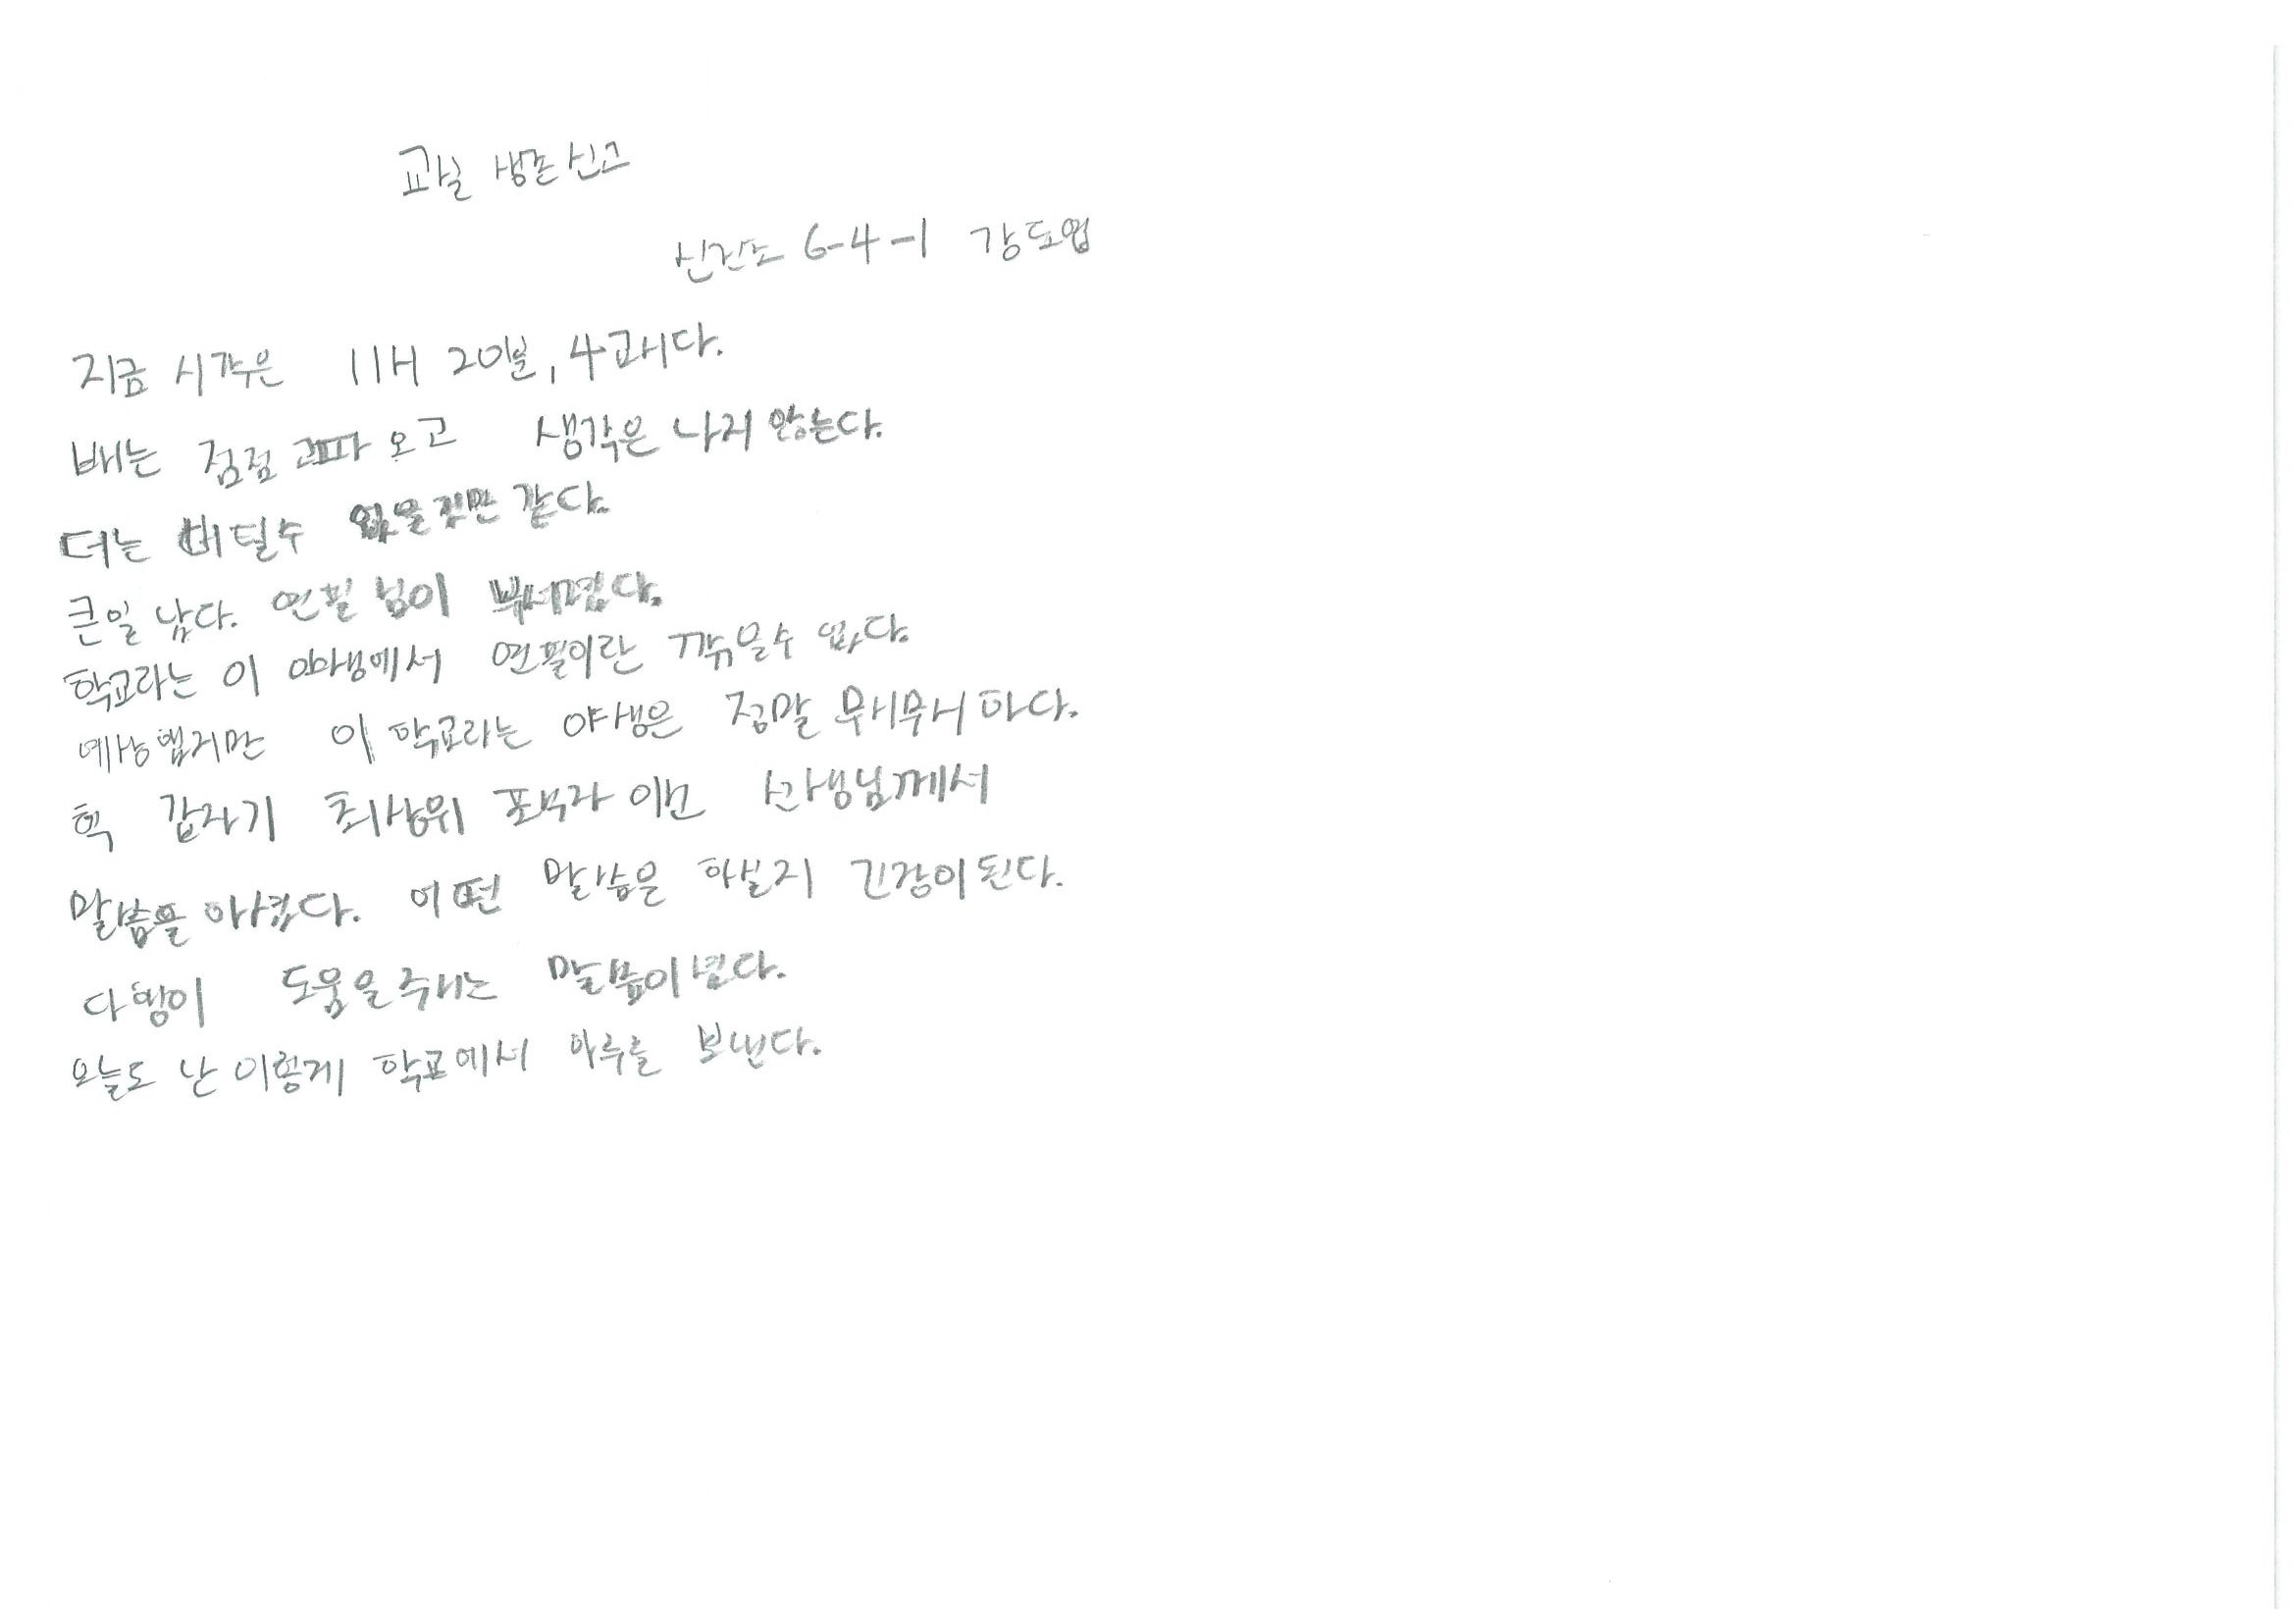 교실 생존신고
신진초 6-4-1 강도엽
지금 시각은 11시 20분, 4교시다.
배는 점점 고파 오고 생각은 나지 않는다.
더는 버틸수 없을것만 같다.
큰일 났다. 연필 님이 부서졌다.
학교라는 이 야생에서 연필이란 깎을수 없다.
예상했지만 이 학교라는 야생은 정말 무시무시 하다.
헉 갑자기 최상위 포식자 이신 선생님께서
말씀을 하셨다. 어떤 말씀을 하실지 긴장이된다.
다행이 도움을주시는 말씀이셨다.
오늘도 난 이렇게 학교에서 하루를 보낸다.